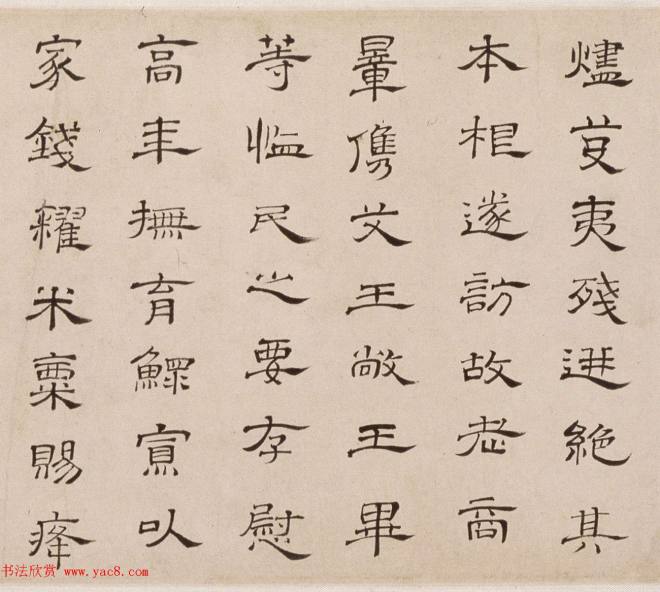 燼芟夷殘迸絕其
本根遂訪故老商
量儁艾王敞王畢
等恤民之要存慰
高年撫育鰥寡以
家錢糴米粟賜癃
书法欣赏 www.yac8.com